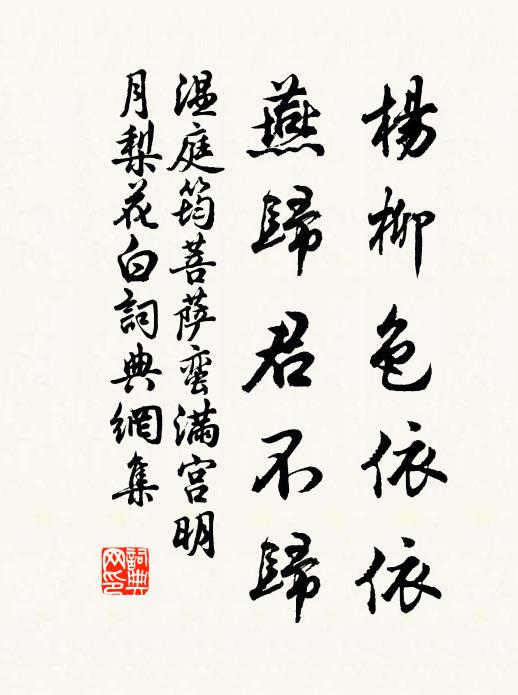 楊柳色依依
燕歸君不歸
温庭筠菩薩蠻滿宮明
月梨花白詞典網集
詞典
网印